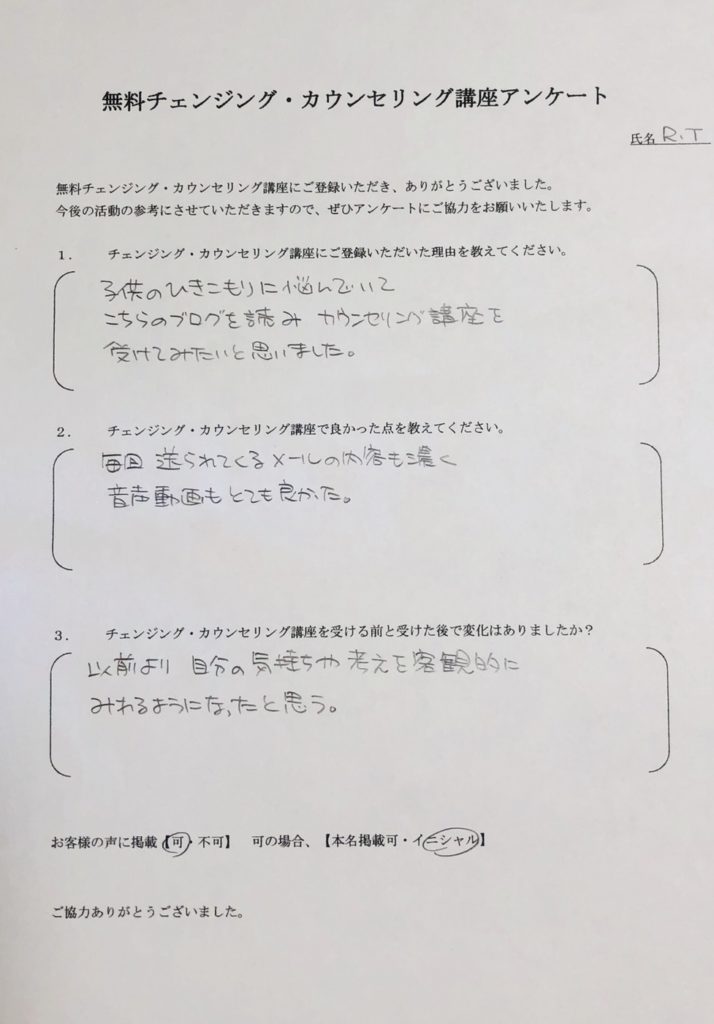 無料チェンジング・カウンセリング講座アンケート
氏名 R.T
無料チェンジング・カウンセリング講座にご登録いただき、ありがとうございました。
今後の活動の参考にさせていただきますので、ぜひアンケートにご協力をお願いいたします。
１． チェンジング・カウンセリング講座にご登録いただいた理由を教えてください。
子供のひきこもりに悩んでいて
こちらのブログを読み カウンセリング講座を
受けてみたいと思いました。
２． チェンジング・カウンセリング講座で良かった点を教えてください。
毎回 送られてくるメールの内容も濃く
音声動画もとても良かった。
３． チェンジング・カウンセリング講座を受ける前と受けた後で変化はありましたか？
以前より 自分の気持ちや考えを客観的に
みれるようになったと思う。
お客様の声に掲載【可・不可】 可の場合、【本名掲載可・イニシャル】
ご協力ありがとうございました。